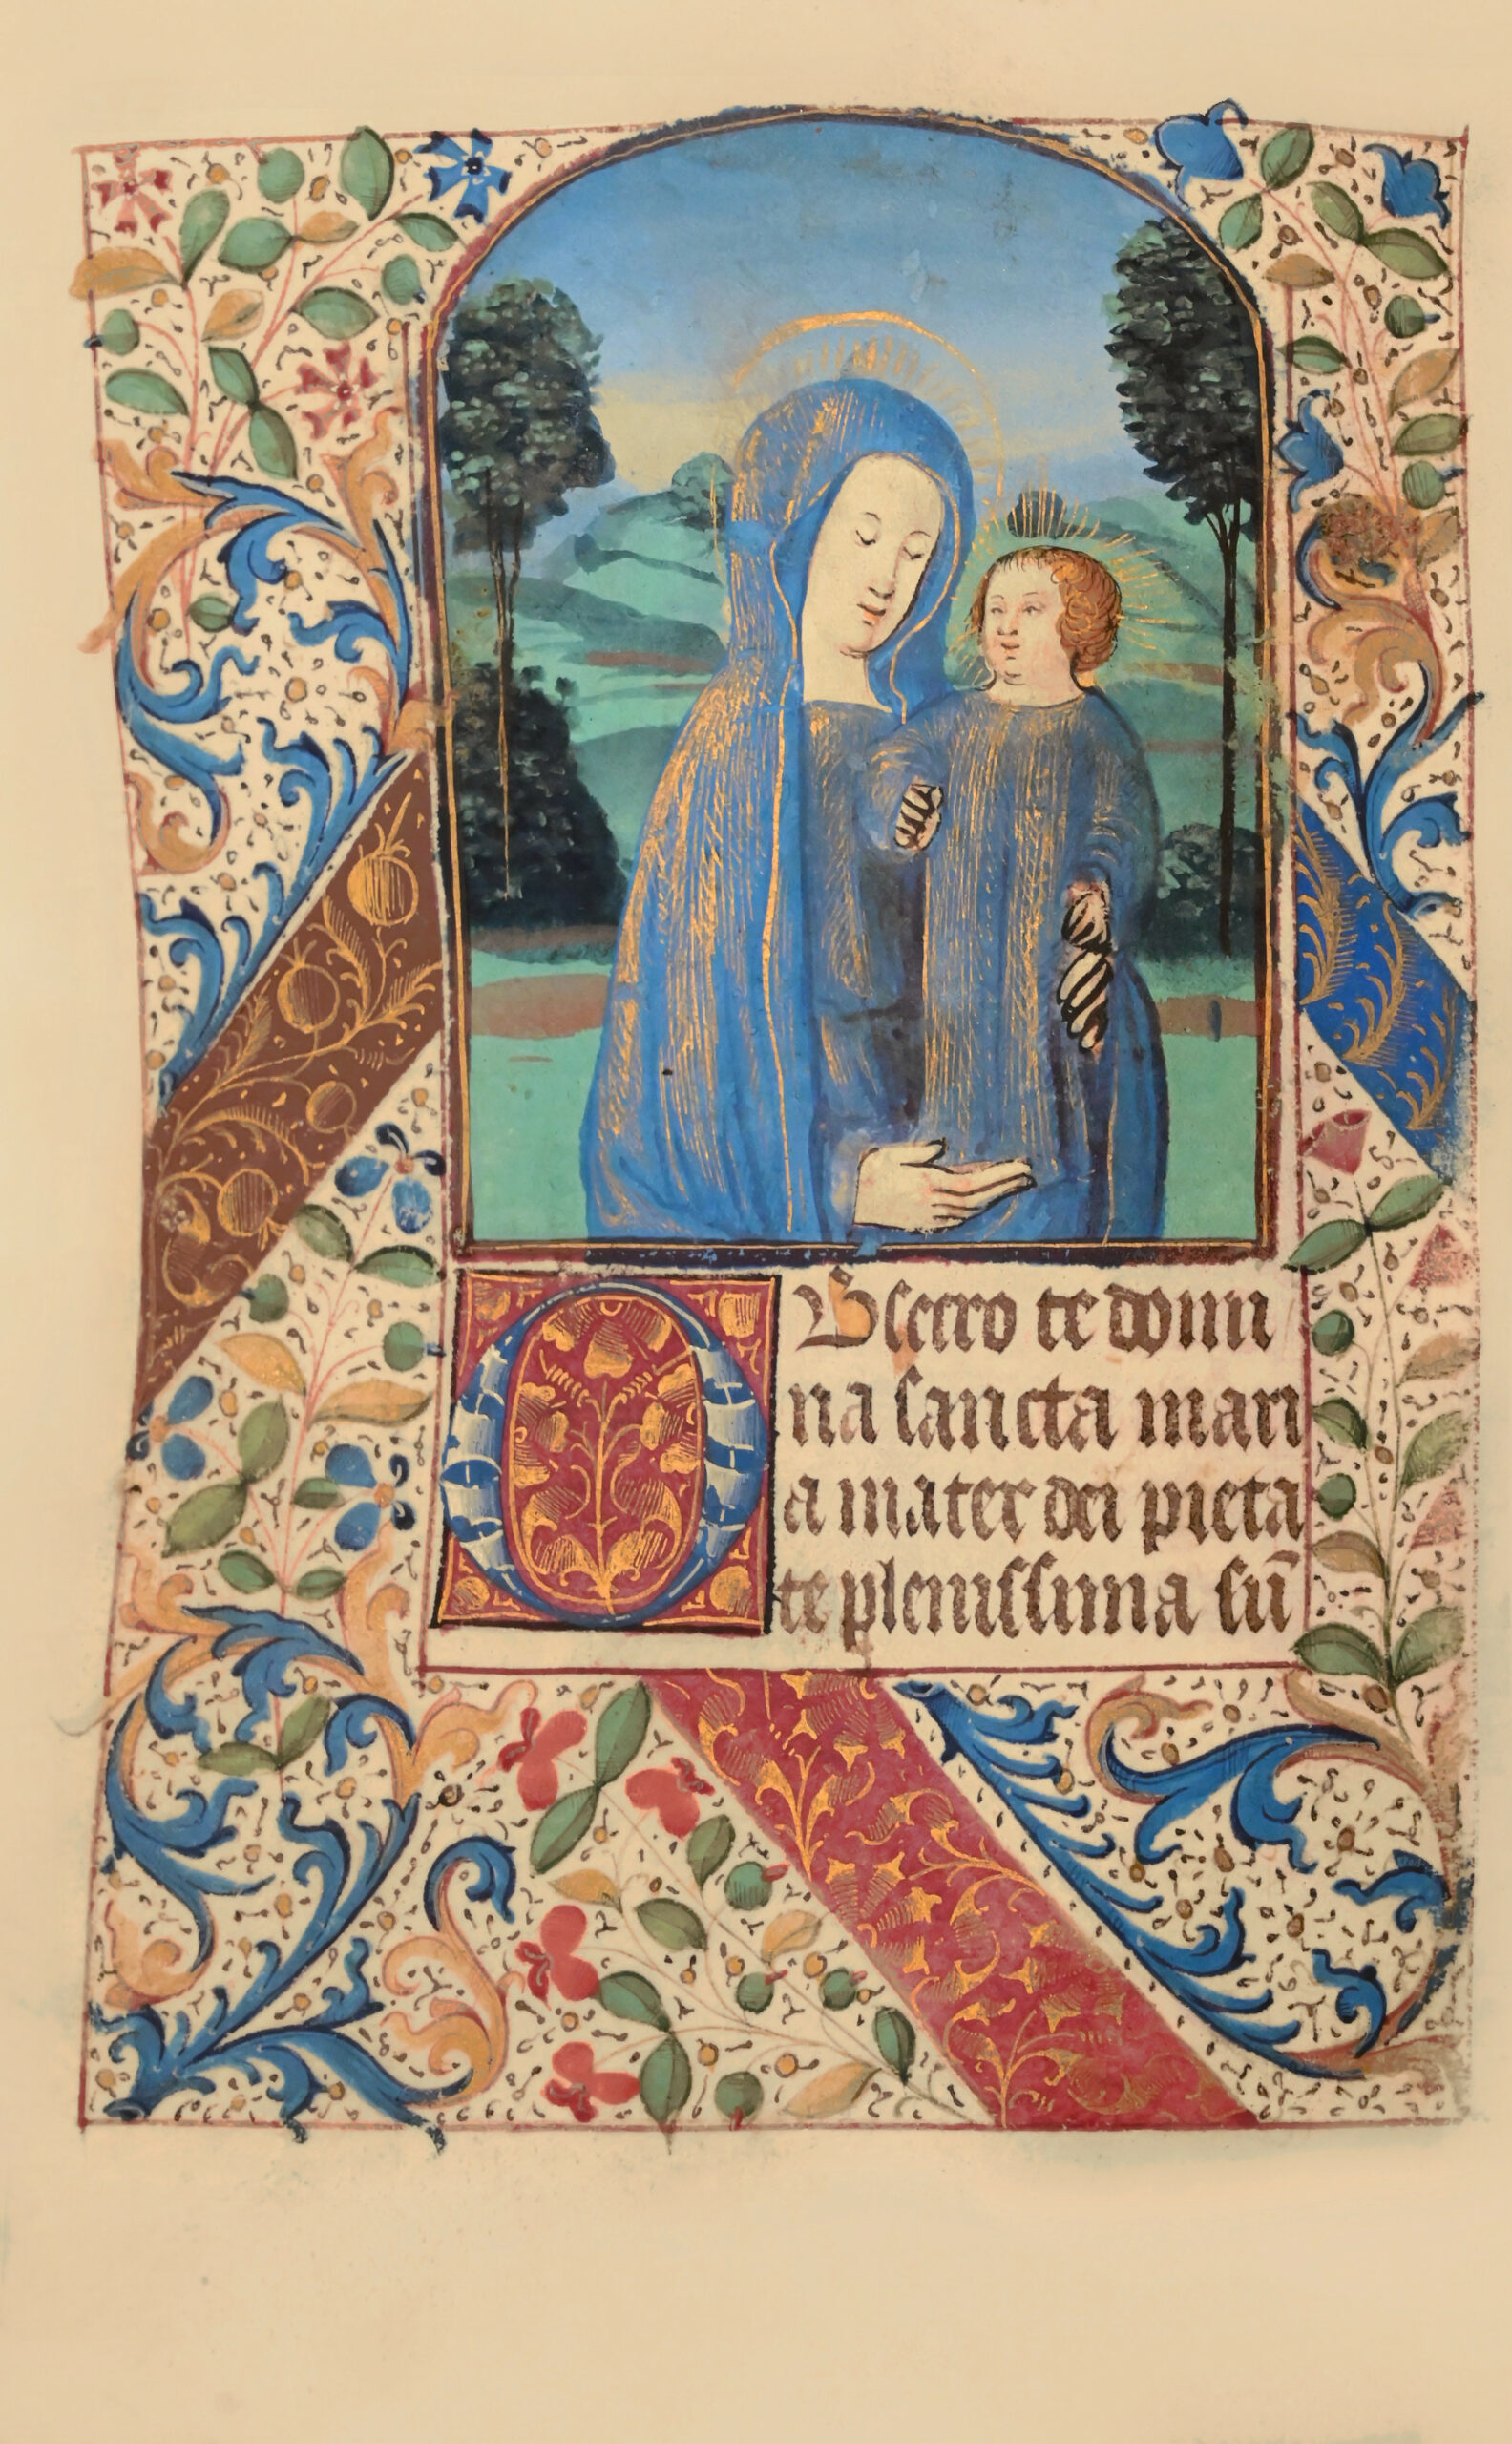 OBsecro te domi
na sancta mari
a mater dei pieta
te plenissima sū